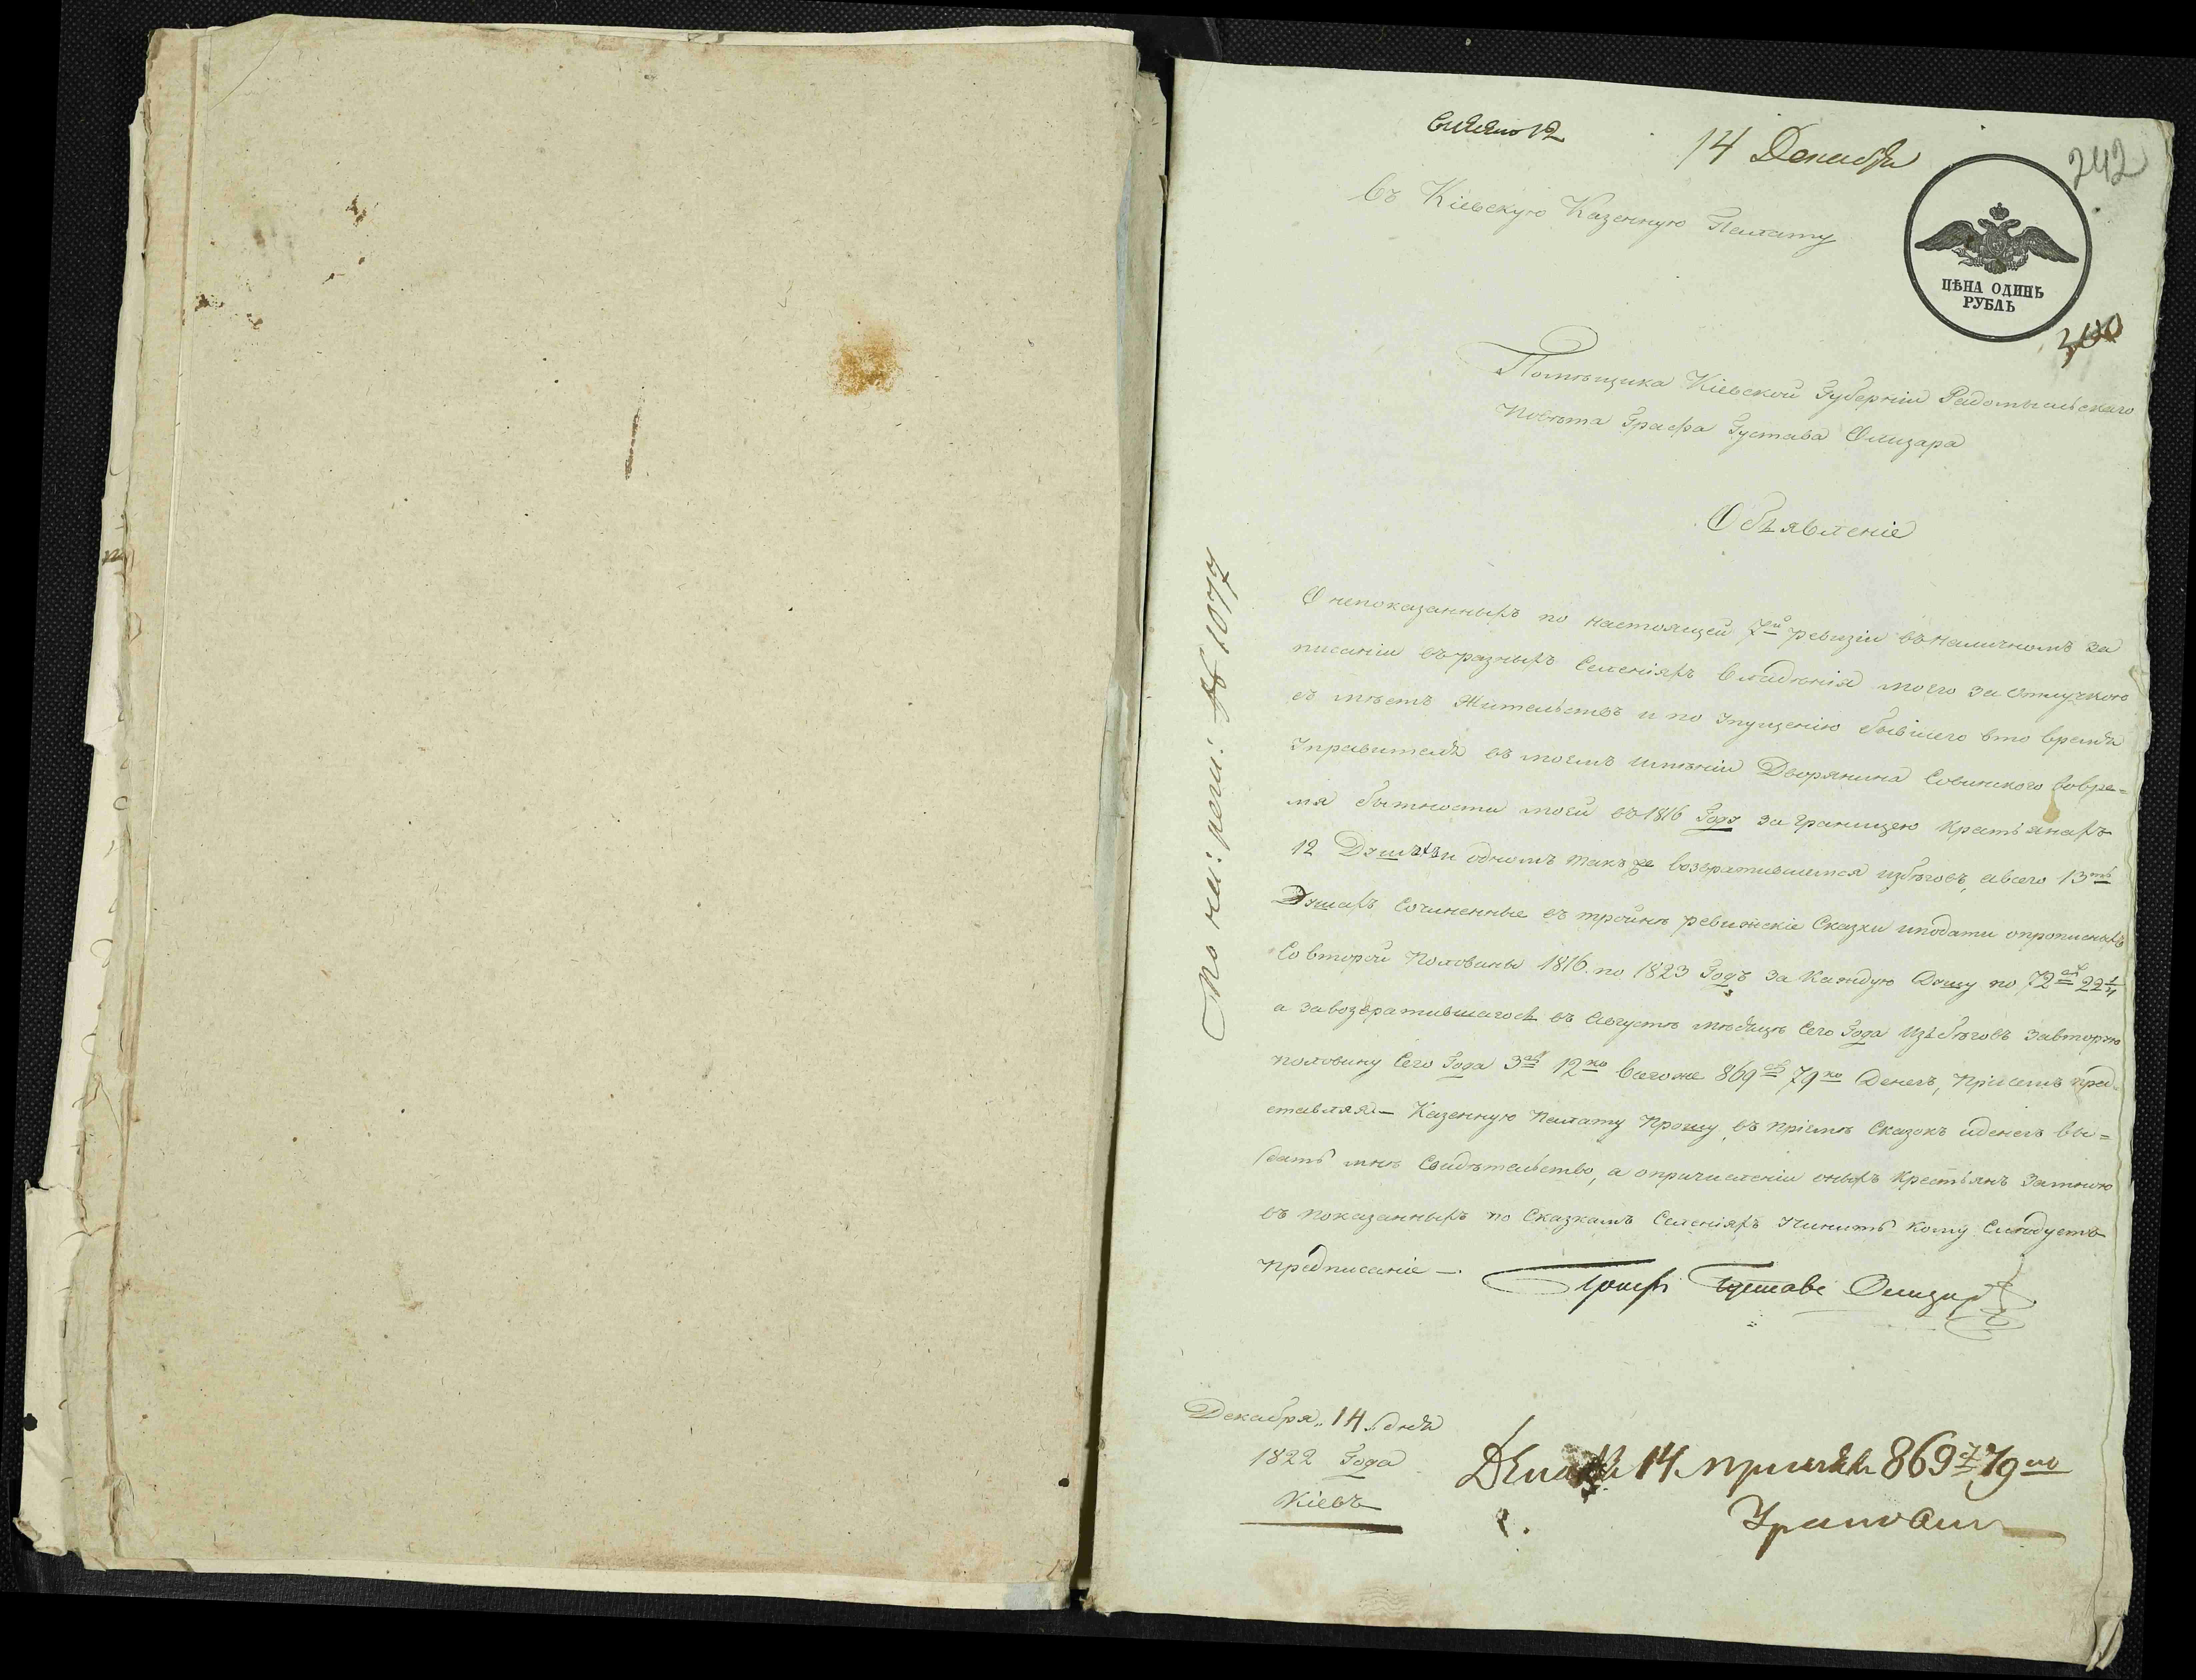 14 Декабря
242
Въ Кіевскую Казенную Палату
ЦѢНА ОДИНЪ
РУБЛЬ
300
Помѣщика Кіевской Губерніи Радомысльскаго
Повѣта Графа Густава Олизара
Объявленіе
О непоказанныхъ по настоящей 7й ревизіи въ наличномъ за
писаніи въ разныхъ Селеніяхъ Владѣнія моего за отлучкою
съ мѣстъ Жительствъ и по Упущенію бывшего вто время
Управителя въ моемъ имѣніи Дворянина Совинского вовре=
мя бытности моей въ 1816 Году за границею Крестьянахъ
12 Душъ и одномъ такъ же возвратившемся избѣговъ, авсего 13ть
Душахъ Сочиненные въ тройнѣ ревижскіе Сказки иподати опрописныхъ
Со второй Половины 1816. по 1823 Годъ за Каждую Душу по 72ру 22¼
а завозвратившагося въ Августѣ мѣсяцѣ Сего Года изъ бѣговъ завторую
половину Сего Года 3ру 12ко Всегоже 869ру 79ко Денегъ, Присемъ пред=
ставляя— Казенную Палату Прошу, въ пріемѣ Сказокъ иденегъ вы=
дать мнѣ Свидѣтельство, а опричисленіи оныхъ Крестьянъ Замною
въ показанныхъ по Сказкамъ Селеніяхъ Учинить кому Слѣдуетъ
предписаніе —.
Графъ Густавъ Олизаръ
Декабря 14 дня
1822 Года
Кіевъ
Декабря 14 принялъ 869 79ко
По на: реги: № 1077